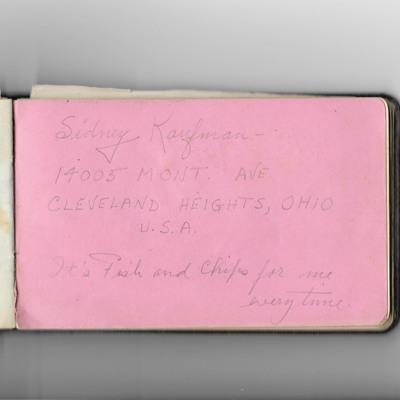 Sidney Kaufman -
14005 MONT. AVE
CLEVELAND HEIGHTS, OHIO
U.S.A.
It's Fish and Chips for me
every time.